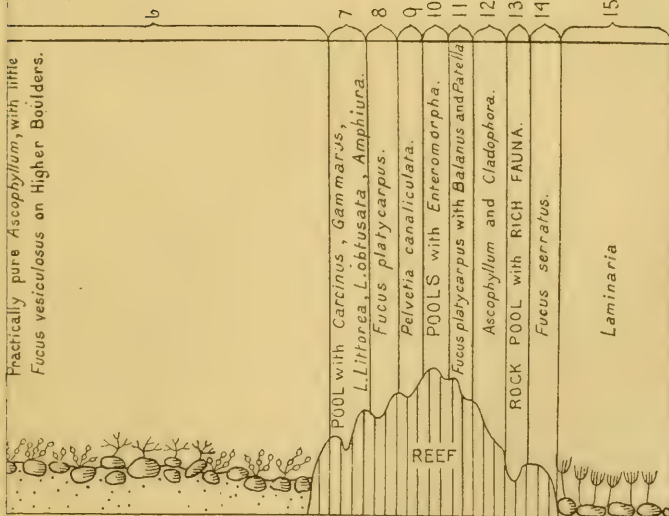 6
7
8
9
10
11
12
13
14
15
Practically pure Ascophyllum, with little
Fucus vesiculosus on Higher Boulders.
POOL with Carcinus, Gammarus,
L. Littorea, L. obtusata, Amphiura.
Fucus platycarpus.
Pelvetia canaliculata.
POOLS with Enteromorpha.
Fucus platycarpus with Balanus and Patella
Ascophyllum and Cladophora.
ROCK POOL with RICH FAUNA.
Fucus serratus.
Laminaria
REEF